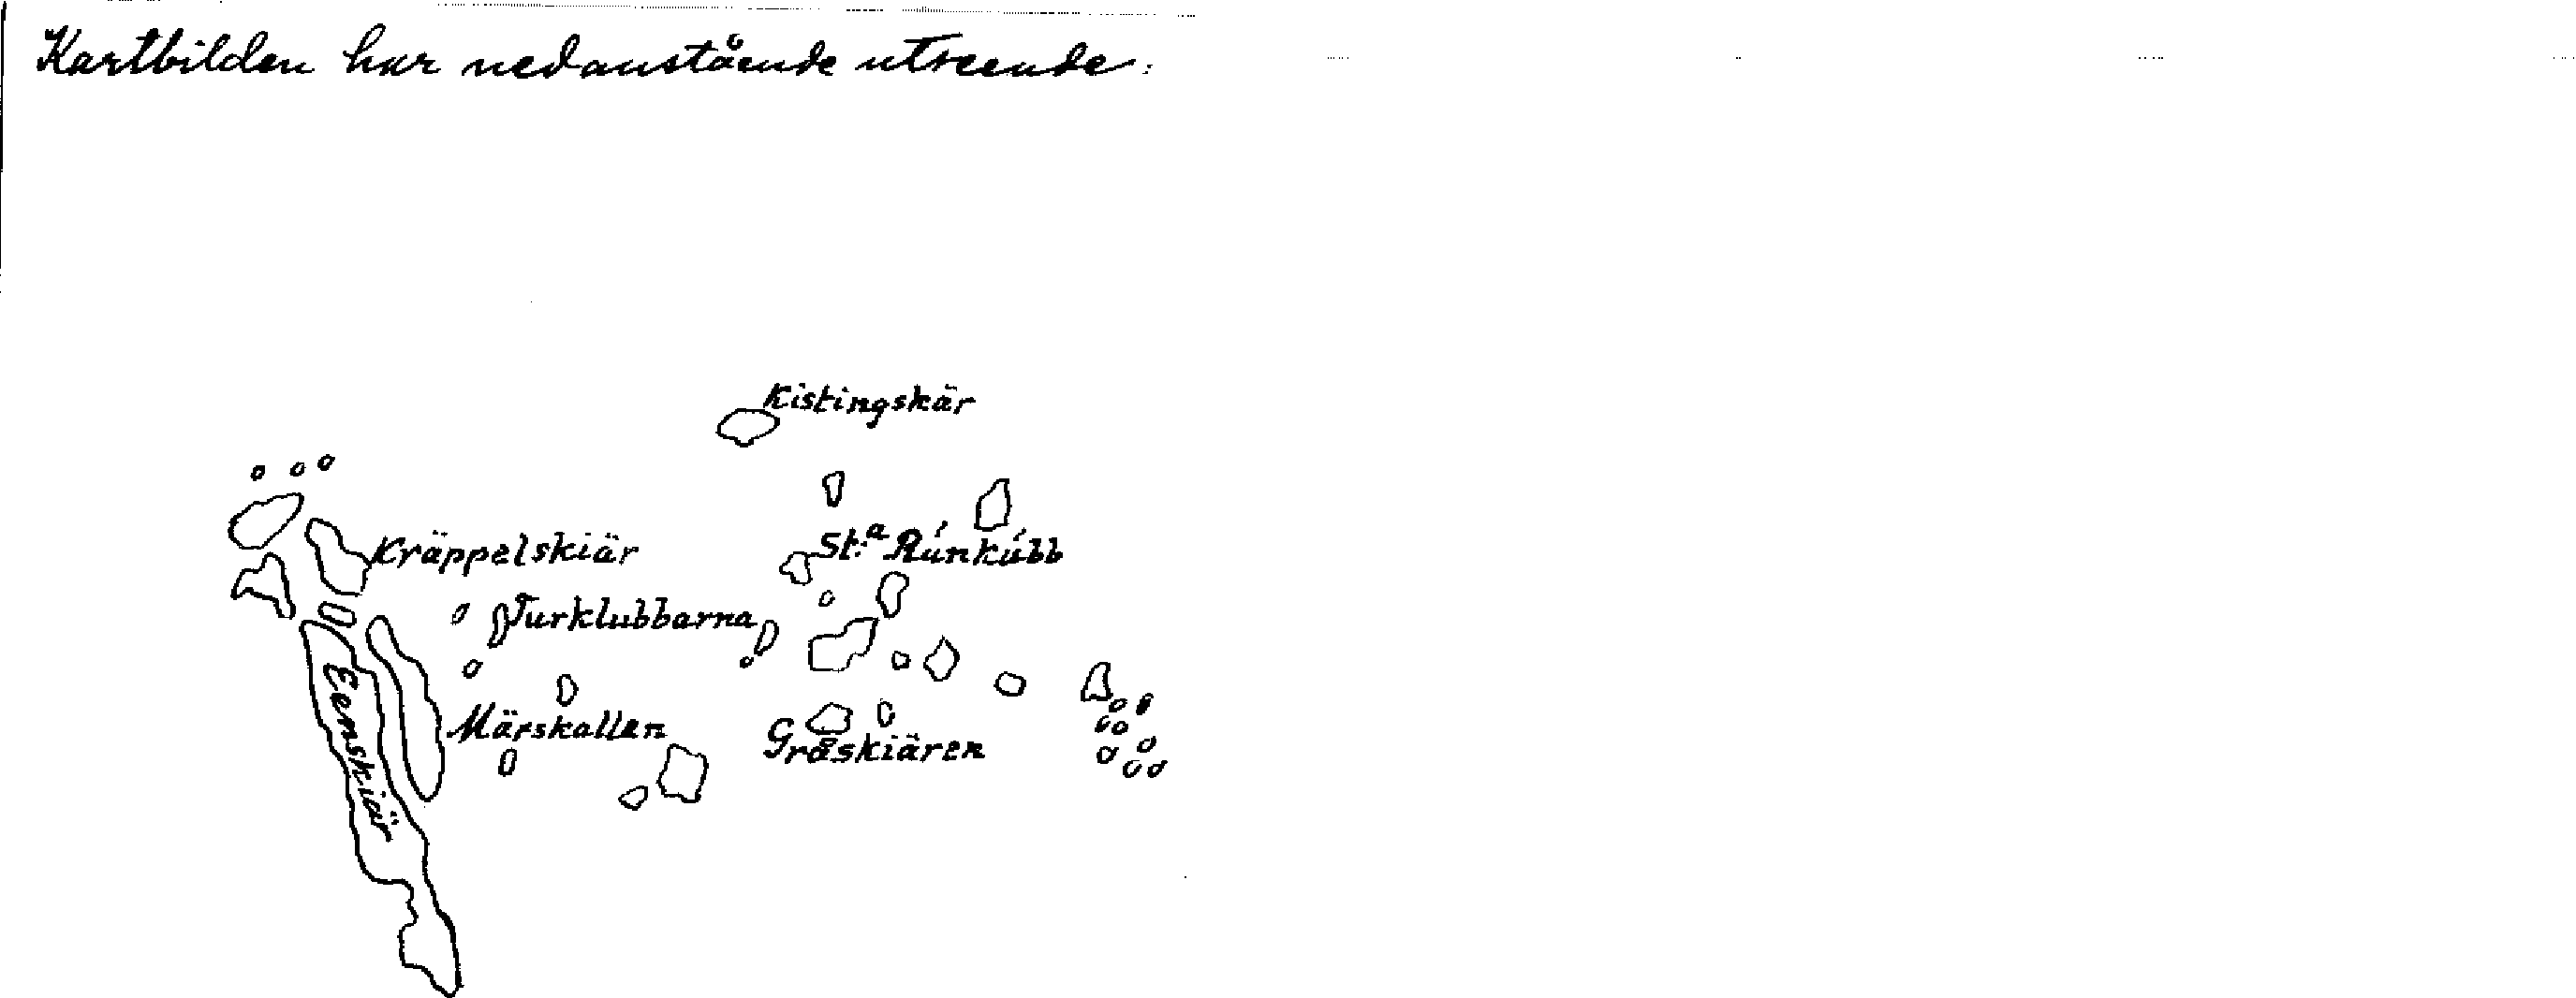 Kartbilden har nedanstående utseende:
Kistingskär
Kräppelskiär
St:a Rúnkúbb
Turklubbarna
Eenskiär
Märskallen
Gråskiären